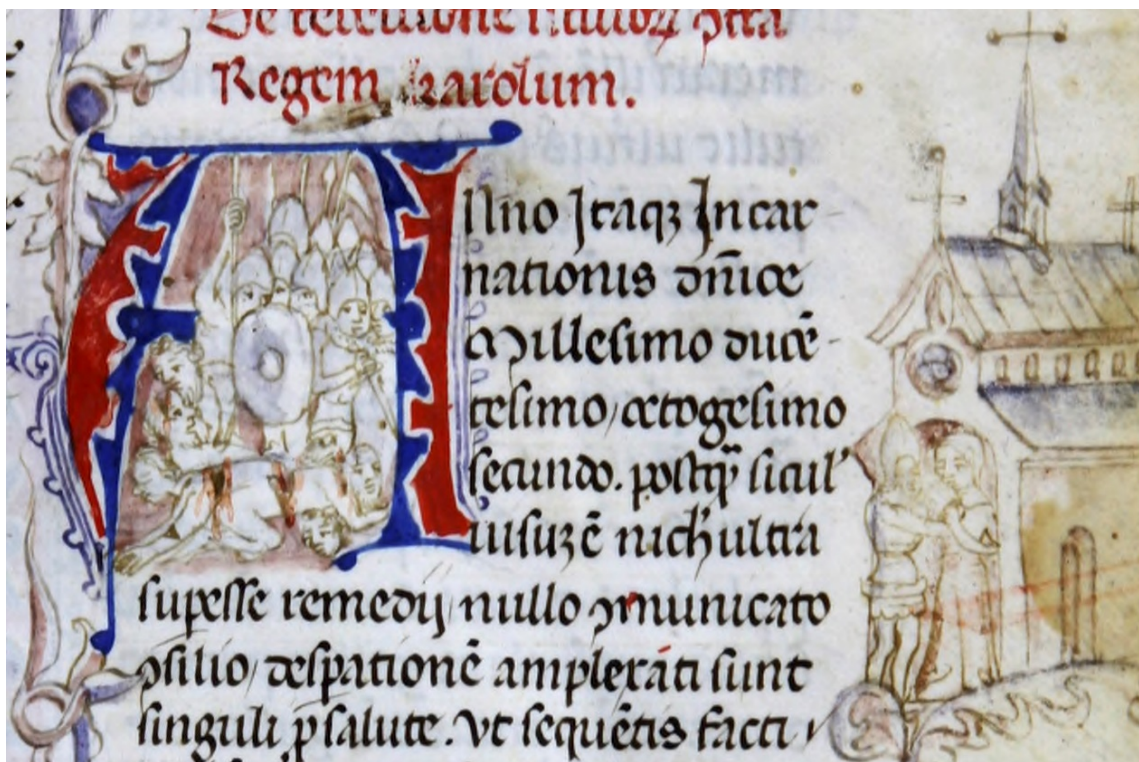 De rebellione siculoꝝ ꝯtra
Regem karolum.
Anno Itaqꝫ Incar-
nationis dn̄ice
Millesimo ducē-
tesimo, octogesimo
secundo. postꝙ̄ sicul’
uisuꝫ ē nich̄ ultra
suꝑesse remedij nullo ꝯmunicato
ꝯsilio, desꝑationē amplexāti sunt
singuli ꝓ salute. Vt sequētis facti